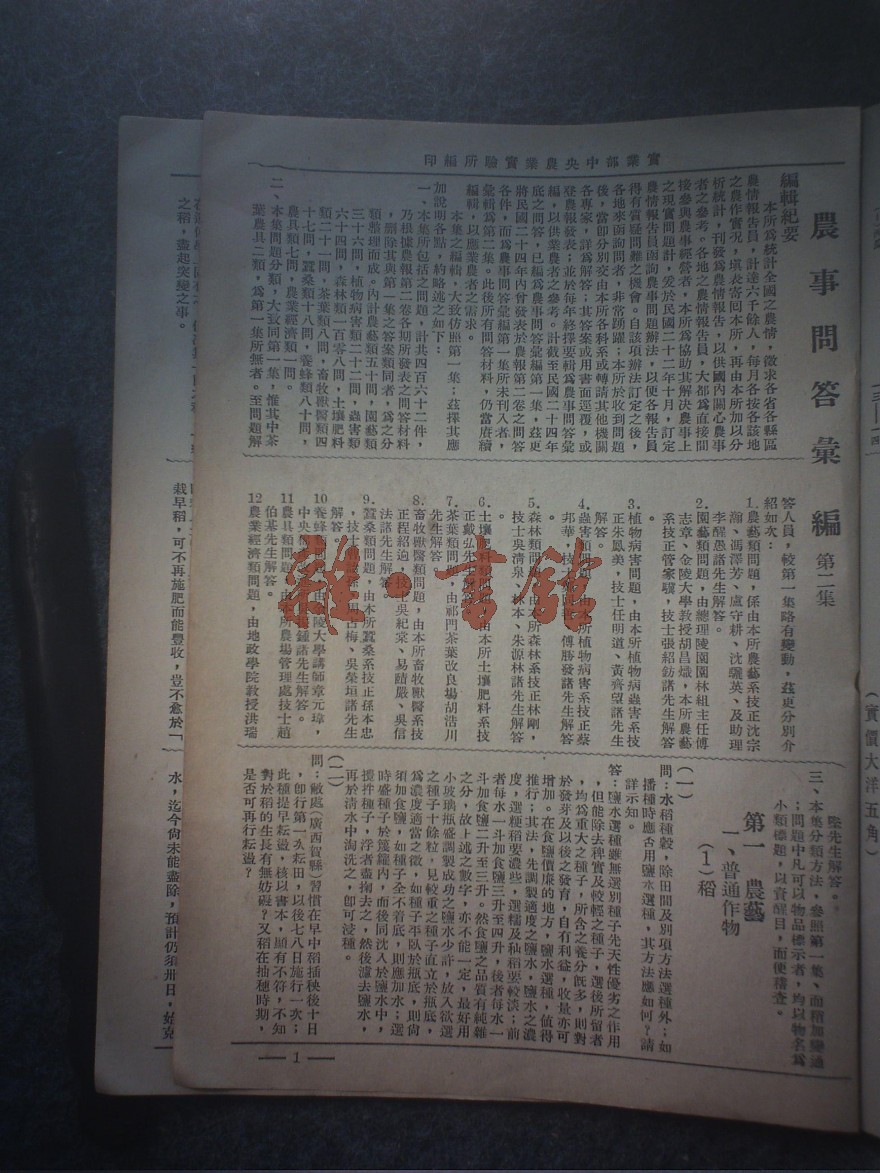 實業部中央農業實驗所編印
農事問答彙編 第二集
(實價大洋五角)
編輯紀要
本所爲統計全國之農情，徵求各省各縣區
農情報告員，計達六千餘人，每月各按各該地
之農作實況，填表寄回本所，再由本所加以分
析統計，刊發爲農情報告，以供國內關心農事
者之參考。各地之農情報告員，大都爲直接間
接參與農事經營者，本所爲協助其解決農事上
之現實問題計，爰於民國二十二年十月，訂定
農情報告員函詢農事問題辦法，以便各報告員
得有質疑問難之機會。自該項辦法訂定之後，
各地來函詢問者，非常踴躍；本所於收到問題
後，當卽分別交由本所各科系或轉請其他機關
各專家，詳爲解答；其答案或用書面逕覆，或
登農報發表；並於每年終擇要輯爲農事問答彙
編，以供業農者之參考。計截至民國二十四年
底之問答，已編爲農事問答彙編第一集，茲更
將民國二十四年內曾發表於農報第二卷之問答
各件，而爲農事問答彙編第一集所未刊入者，
彙輯爲第二集。此後所有問答材料，仍當賡續
編輯，以應業農者之需求。
本集之編輯，大致仿照第一集；茲擇其應
加說明各點，約略述之如下：
一、本集所包括之問題，計共四百六十二件，
乃根據農報第二卷各期所發表之問答材料
，刪除其與第一集之答案類同者，爲之分
類整理而成。內計農藝類五十問，園藝類
三十六問，植物病害類二十二問，蟲害類
六十四問，森林類一百零八問，土壤肥料
類二十一問，茶葉類八問，畜牧獸醫類四
十七問，蠶桑類十八問，養蜂類八十問，
農具類七問，農業經濟類一問。
二、本集問題分類，大致同第一集，惟其中茶
葉農具二類，爲第一集所無者。至問題解
答人員，較第一集略有變動，茲更分別介
紹如次：
1.農藝類問題，係由本所農藝系技正沈宗
瀚、馮澤芳、盧守耕、沈驪英、及助理
李醒愚諸先生解答。
2.園藝類問題，由總理陵園園林組主任傅
志章、金陵大學教授胡昌熾，本所農藝
系技正管家驥，技士張紹鈁諸先生解答
。
3.植物病害問題，由本所植物病蟲害系技
正朱鳳美，技士任明道、黃齊望諸先生
解答。
4.蟲害類問題，由本所植物病害系技正蔡
邦華，技士 傅勝發諸先生解答
。
5.森林類問題，由本所森林系技正林剛，
技士吳清泉、林本、朱源林諸先生解答
。
6.土壤肥料類問題，由本所土壤肥料系技
正戴弘先生解答。
7.茶葉類問題，由祁門茶葉改良場胡浩川
先生解答。
8.畜牧獸醫類問題，由本所畜牧獸醫系技
正程紹迥，技士吳紀棠、易蹟嚴、吳信
法諸先生解答。
9.蠶桑類問題，由本所蠶桑系技正孫本忠
，技士 梅、吳榮垣諸先生
解答。
10養蜂類問題，由金陵大學講師章元瑋，
中央模 鍾諸先生解答。
11農具類問題，由本所農場管理處技士趙
伯基先生解答。
12農業經濟類問題，由地政學院教授洪瑞
堅先生解答。
三、本集分類方法，參照第一集，而稍加變通
；問題中凡可以物品標示者，均以物名爲
小類標題，以資醒目，而便稽查。
第一 農藝
一、普通作物
(1)稻
(一)
問：水稻種穀，除田間及別項方法選種外；如
播種時應否用鹽水選種，其方法應如何？請
詳示知。
答：鹽水選種雖無選別種子先天性優劣之作用
，但能除去稗實及較輕之種子，選後所留者
，均爲重大之種子，所含之養分旣多，則對
於發芽及以後之發育，自有利益，收量亦可
增加。在食鹽價廉的地方，鹽水選種，值得
推行；其法，先調製適度之鹽水，鹽水之濃
度，選粳稻要濃些，選糯及秈稻要較淡；前
者每水一斗加食鹽三升至四升，後者每水一
斗加食鹽二升至三升。然食鹽之品質有純雜
之分，故上述之數字，亦不能一定，最好用
小玻璃瓶盛調製成功之鹽水少許，放入欲選
之種子十餘粒，見較重之種子直立於瓶底，
爲濃度適當之徵，如種子平臥於瓶底，則尙
須加食鹽，如種子全不着底，則應加水；選
時盛種子於籮籮內，而後同沈入於鹽水中，
攪拌種子，浮者盡掬去之，然後濾去鹽水，
再於清水中淘洗之，卽可浸種。
(二)
問：敝處(廣西賀縣)習慣在早中稻插秧後十日
，卽行第一次耘田，以後七八日施行一次；
此種提早耘盪，核以書本，顯有不符，不知
對於稻的生長有無妨礙？又稻在抽穗時期，
是否可再行耘盪？
— 1 —
之稻，盡起突變之事。
栽早稻，可不再施肥而能豐收，豈不愈於「
水，迄今尙未能盡除，預計仍須卅日，始克
雜·書館